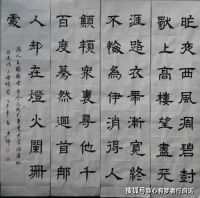 昨夜西風凋碧樹
獨上高樓望盡天
涯路衣帶漸寬終
不悔為伊消得人
顦顇衆裏尋他千
百度驀然迴首那
人却在燈火闌珊
處
搜狐号@心有梦者行自远